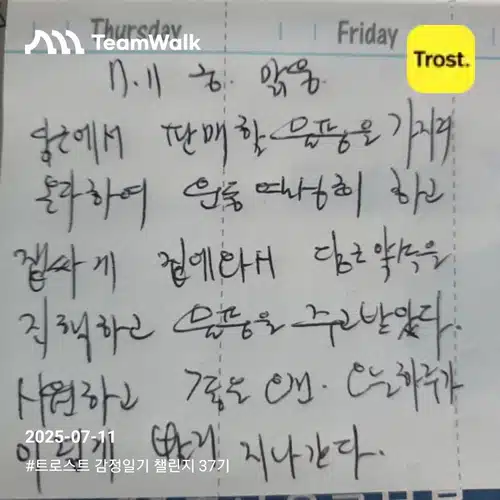 Thursday
Friday
TeamWalk
Trost.
7.11 금. 맑음.
당근에서 판매할 물품을 가지러
온다하여 운동 하고
잽싸게 집에와서 당근약속을
직행하고 물품을 주고받았다.
시원하고 오늘하루가
이렇게 빨리 지나간다.
2025-07-11
#트로스트 감정일기 챌린지 37기